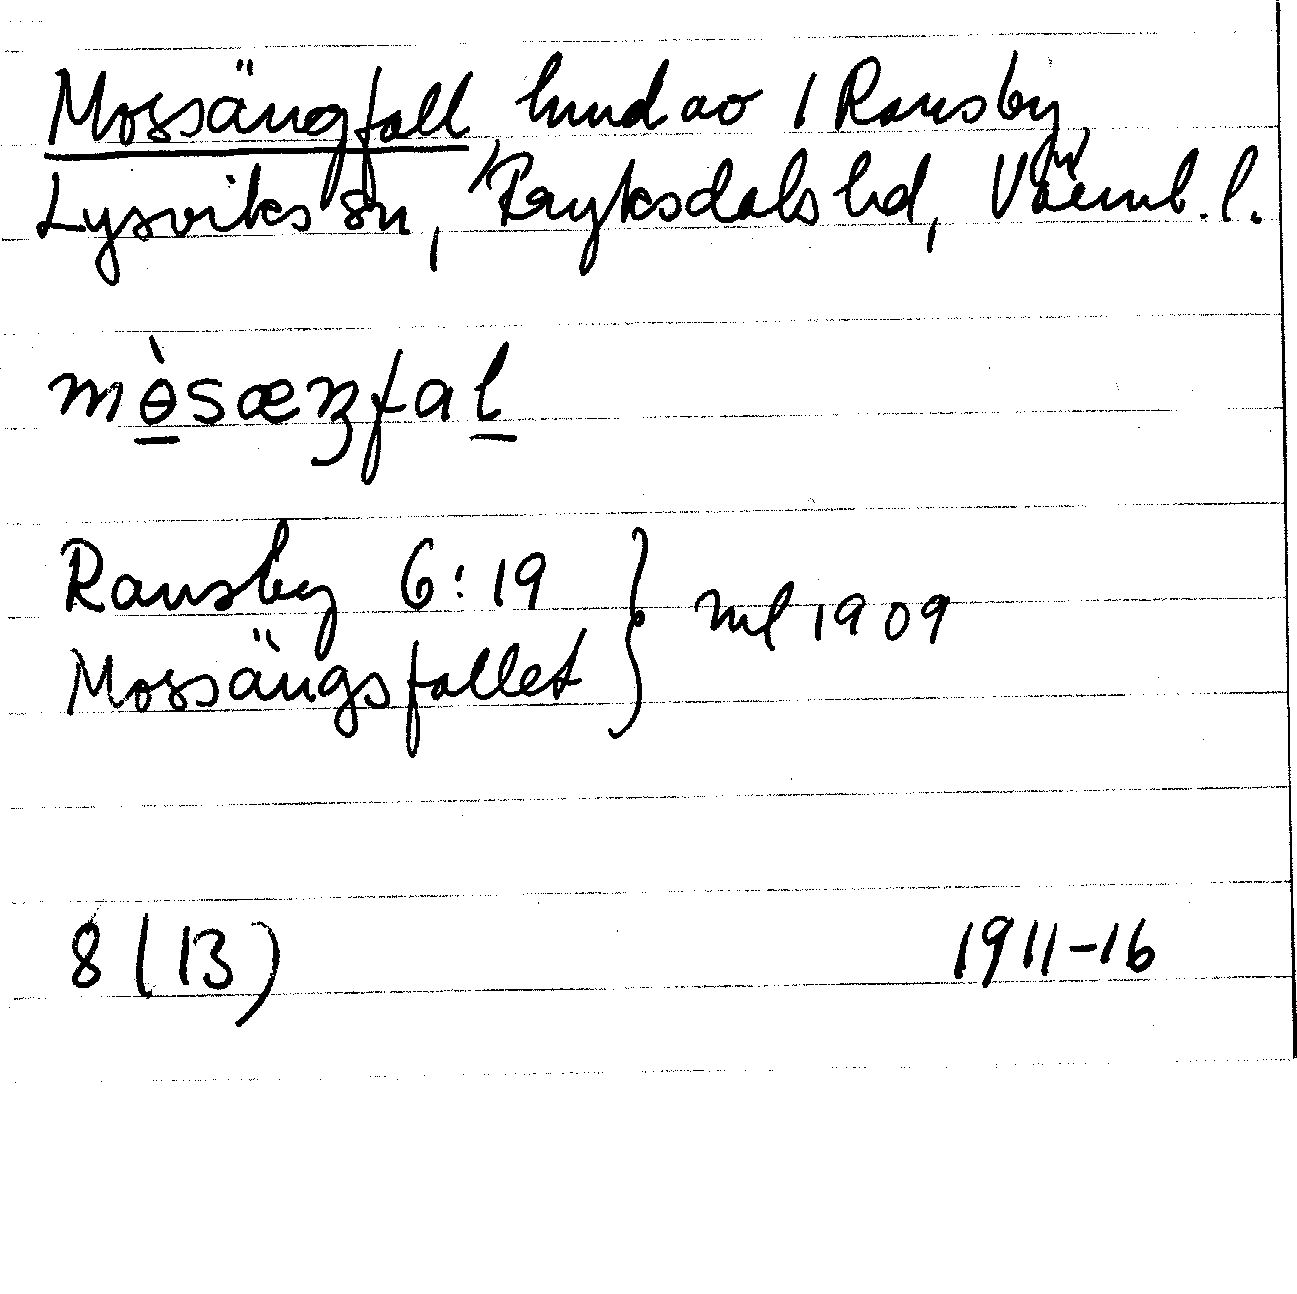 Mossängfall hmd av 1 Ransby,
Lysviks sn, Fryksdals hd, Värml. l.
mɵ̀sæŋfal
Ransby 6:19 } ml 1909
Mossängsfallet
8 (13) 1911-16